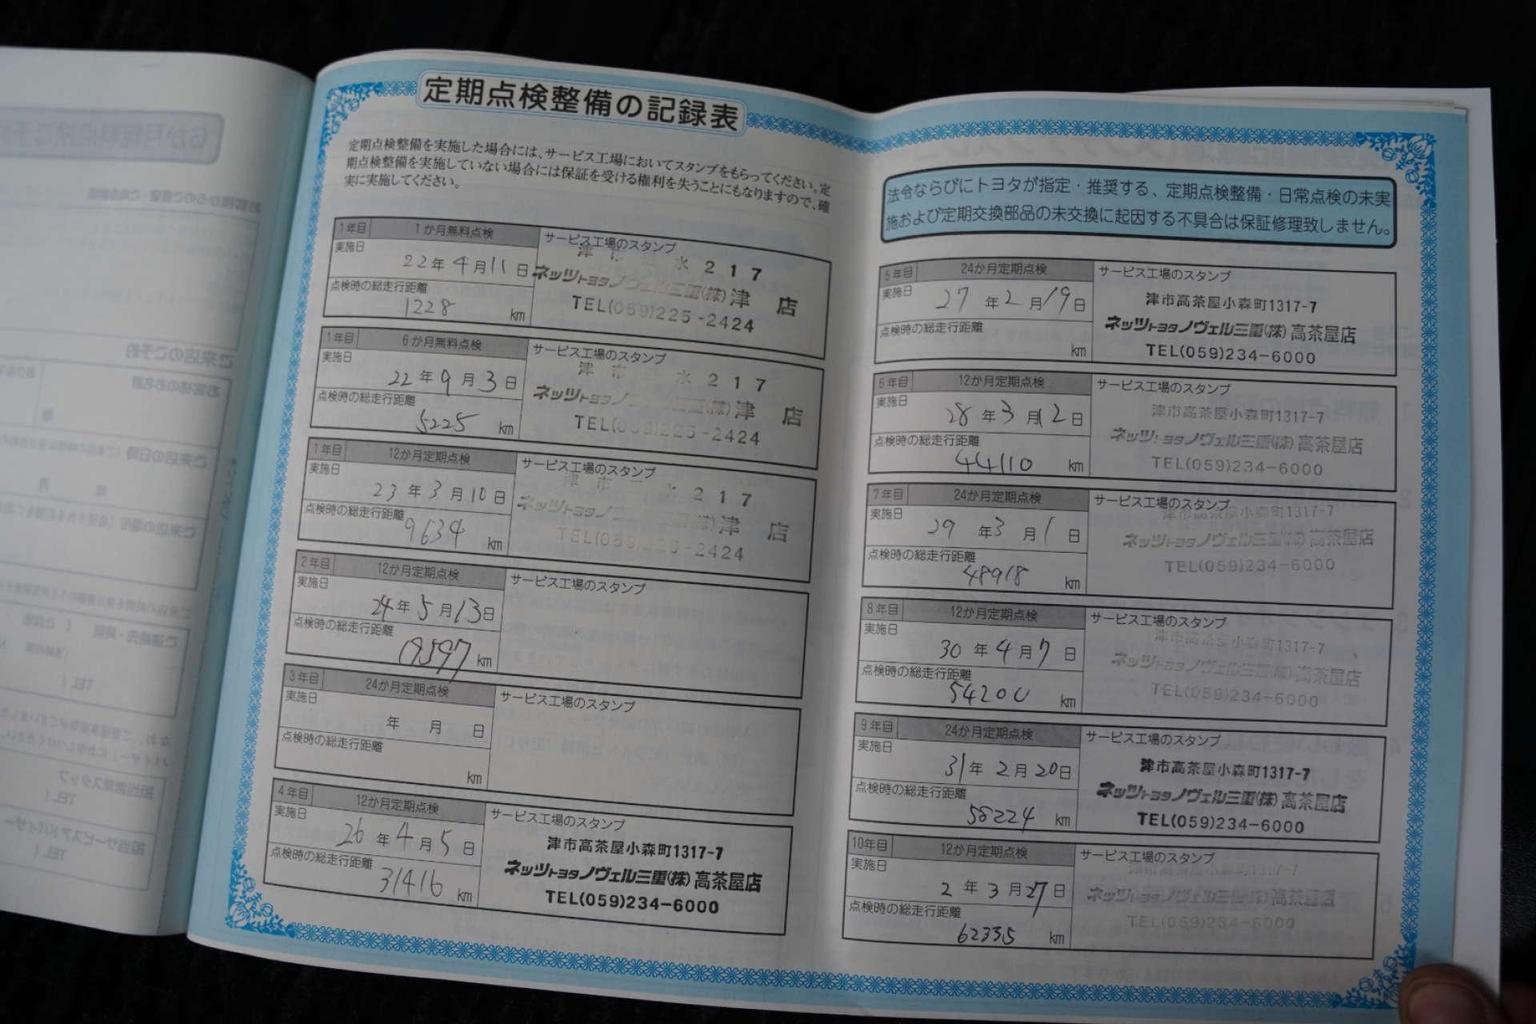 定期点検整備の記録表
定期点検整備を実施した場合には、サービス工場においてスタンプをもらってください。定
期点検整備を実施していない場合には保証を受ける権利を失うことにもなりますので、確
実に実施してください。
1年目 1か月無料点検 サービス工場のスタンプ
実施日 22年4月11日
津市 水217
ネッツトヨタノヴェル三重(株)津店
点検時の総走行距離
1228 km
TEL(059)225-2424
1年目 6か月無料点検 サービス工場のスタンプ
実施日 22年9月3日
津市 水217
ネッツトヨタノヴェル三重(株)津店
点検時の総走行距離
5225 km
TEL(059)225-2424
1年目 12か月定期点検 サービス工場のスタンプ
実施日 23年3月10日
津市 217
ネッツトヨタノヴェル三重(株)津店
点検時の総走行距離
9634 km
TEL(059)225-2424
2年目 12か月定期点検 サービス工場のスタンプ
実施日 24年5月13日
点検時の総走行距離
19597 km
3年目 24か月定期点検 サービス工場のスタンプ
実施日 年 月 日
点検時の総走行距離
km
4年目 12か月定期点検 サービス工場のスタンプ
実施日 26年4月5日
津市高茶屋小森町1317-7
ネッツトヨタノヴェル三重(株)高茶屋店
点検時の総走行距離
31416 km
TEL(059)234-6000
法令ならびにトヨタが指定・推奨する、定期点検整備・日常点検の未実
施および定期交換部品の未交換に起因する不具合は保証修理致しません。
5年目 24か月定期点検 サービス工場のスタンプ
実施日 27年2月19日
津市高茶屋小森町1317-7
ネッツトヨタノヴェル三重(株)高茶屋店
点検時の総走行距離
km
TEL(059)234-6000
6年目 12か月定期点検 サービス工場のスタンプ
実施日 28年3月12日
津市高茶屋小森町1317-7
ネッツトヨタノヴェル三重(株)高茶屋店
点検時の総走行距離
44110 km
TEL(059)234-6000
7年目 24か月定期点検 サービス工場のスタンプ
実施日 29年3月1日
津市高茶屋小森町1317-7
ネッツトヨタノヴェル三重(株)高茶屋店
点検時の総走行距離
48918 km
TEL(059)234-6000
8年目 12か月定期点検 サービス工場のスタンプ
実施日 30年4月7日
津市高茶屋小森町1317-7
ネッツトヨタノヴェル三重(株)高茶屋店
点検時の総走行距離
54200 km
TEL(059)234-6000
9年目 24か月定期点検 サービス工場のスタンプ
実施日 31年2月20日
津市高茶屋小森町1317-7
ネッツトヨタノヴェル三重(株)高茶屋店
点検時の総走行距離
58224 km
TEL(059)234-6000
10年目 12か月定期点検 サービス工場のスタンプ
実施日 2年3月27日
津市高茶屋小森町1317-7
ネッツトヨタノヴェル三重(株)高茶屋店
点検時の総走行距離
62335 km
TEL(059)234-6000